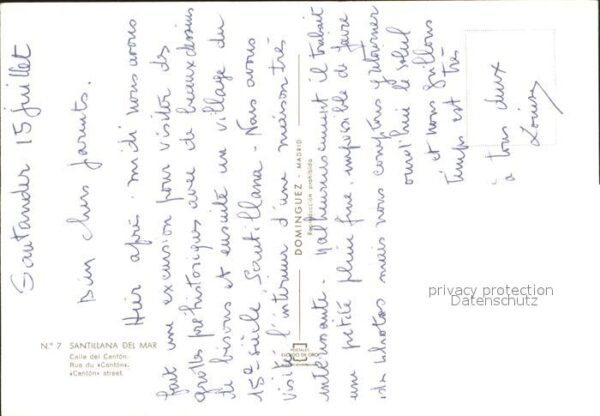 Santander 15 juillet
Bien chers parents.
Hier après-midi nous avons
fait une excursion pour visiter des
grottes préhistoriques avec de beaux dessins
de bisons et ensuite un village du
15e siècle Santillana - Nous avons
visité l'intérieur d'une maison très
intéressante - Malheureusement il tombait
une petite pluie fine, impossible de faire
des photos mais nous comptons y retourner
aujourd'hui le soleil
et nous
temps est très
à tous deux
Louise
N.° 7 SANTILLANA DEL MAR
Calle del Cantón.
Rue du «Cantón».
«Cantón» street.
DOMINGUEZ - MADRID
Reproducción prohibida
POSTALES
ESCUDO DE ORO
privacy protection
Datenschutz